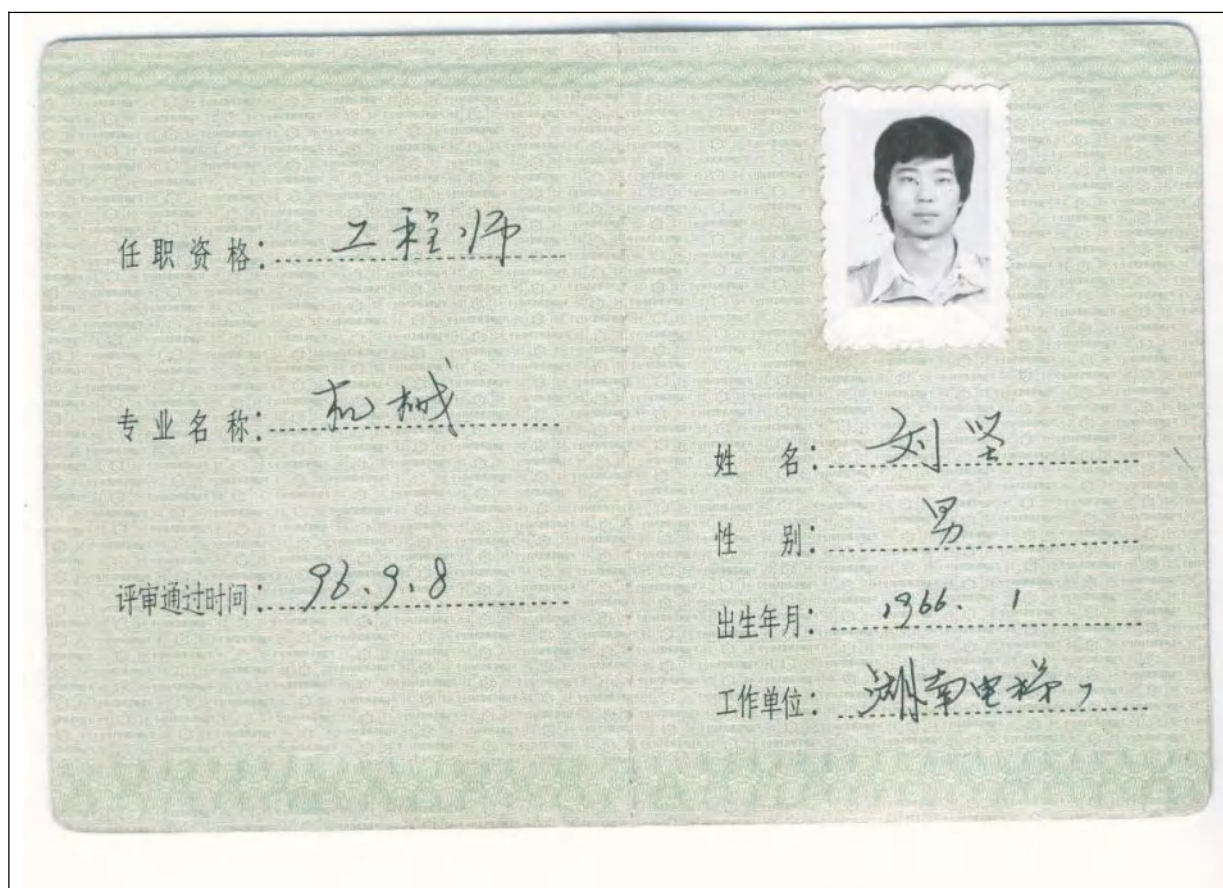 任职资格: 工程师
专业名称: 机械
评审通过时间: 96.9.8
姓 名: 刘坚
性 别: 男
出生年月: 1966. 1
工作单位: 湖南电梯厂